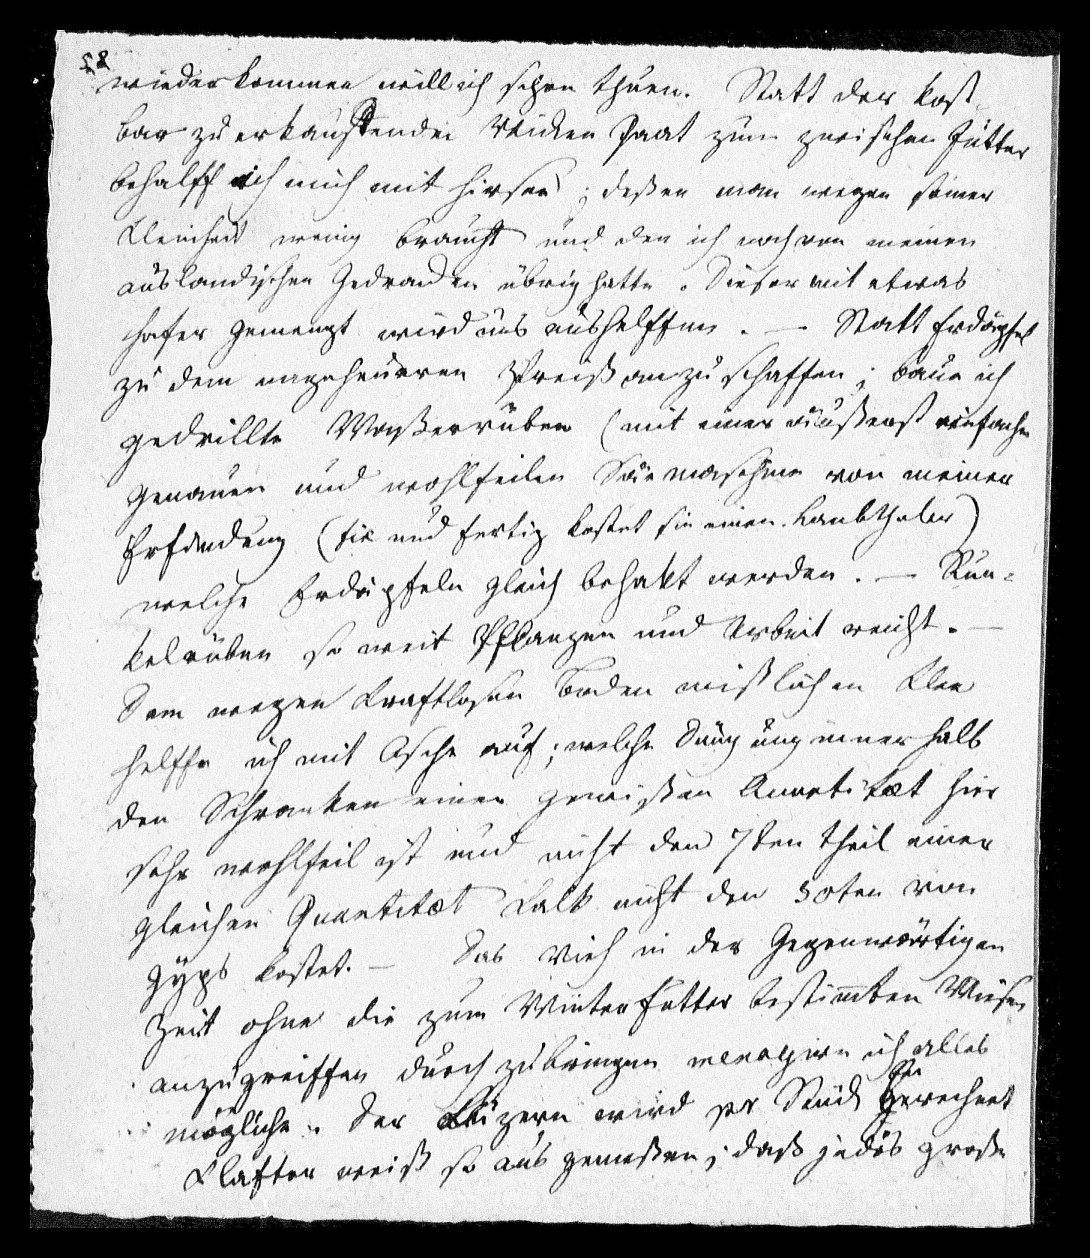 wieder kommen will ich schon thuen. Statt der kost-
bar zu erkauffenden Wicken Saat zum zwischen Futter
behalff ich mich mit Hirsen; deßen man wegen seiner
Kleinheit wenig braucht und den ich noch von meinen
ausländischen Gedraiden übrig hatte. Dieser mit etwas
Hafer gemengt wird uns aushelffen. — Statt Erdäpfel
zu dem ungeheuren Preiß anzuschaffen; baue ich
gedrillte Waßerrüben (mit einer äußerst einfachen
genauen und wohlfeilen Säemaschine von meiner
Erfindung (fix und fertig kostet sie einen Laubthaler)
welche Erdäpfeln gleich behakt werden. — Run-
kelrüben so weit Pflanzen und Arbeit reicht. —
Dem wegen kraftlosen Boden mißlichen Klee
helffe ich mit Asche auf; welche Düngung innerhalb
den Schranken einer gewißen Quantitæt hier
sehr wohlfeil ist und nicht den 7ten theil einer
gleichen Quantitæt Kalk nicht den 30ten von
Gyps kostet. — Das Vieh in der Gegenwärtigen
Zeit ohne die zum Winterfutter bestimten Wiesen
anzugreiffen durchzubringen menagire ich alles
mögliche. Der Luzern wird pr Stück gerechnet
Klafter weiß so ausgemeßen; daß jedes große